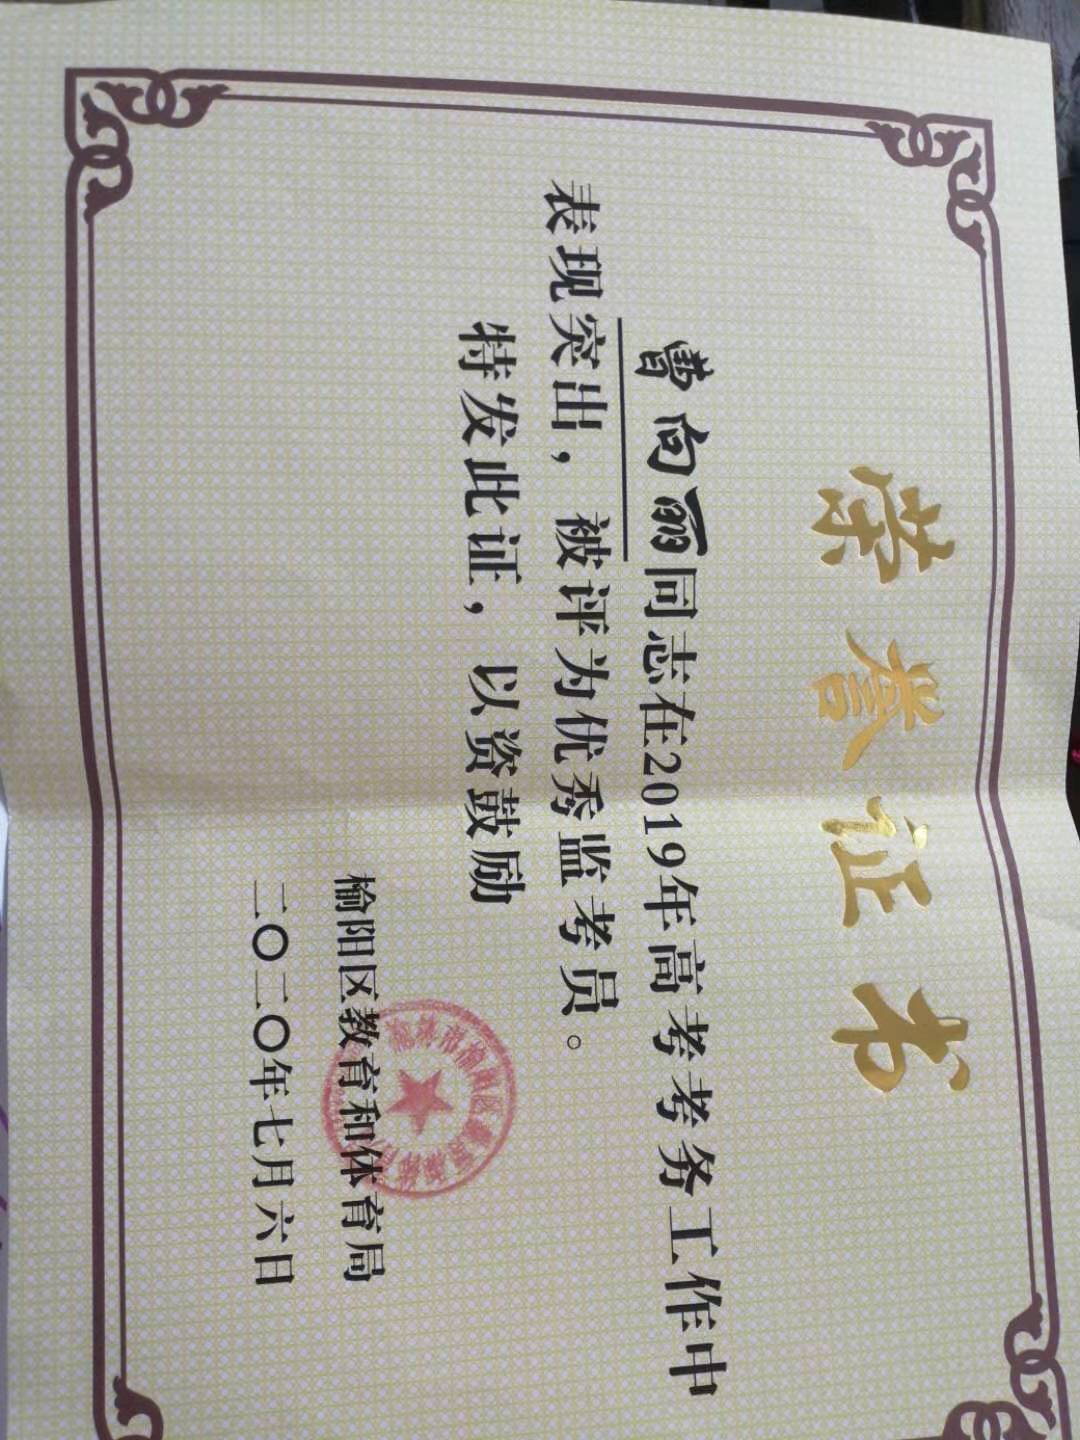 荣誉证书
曹向丽同志在2019年高考考务工作中
表现突出，被评为优秀监考员。
特发此证，以资鼓励
榆阳区教育和体育局
二〇二〇年七月六日